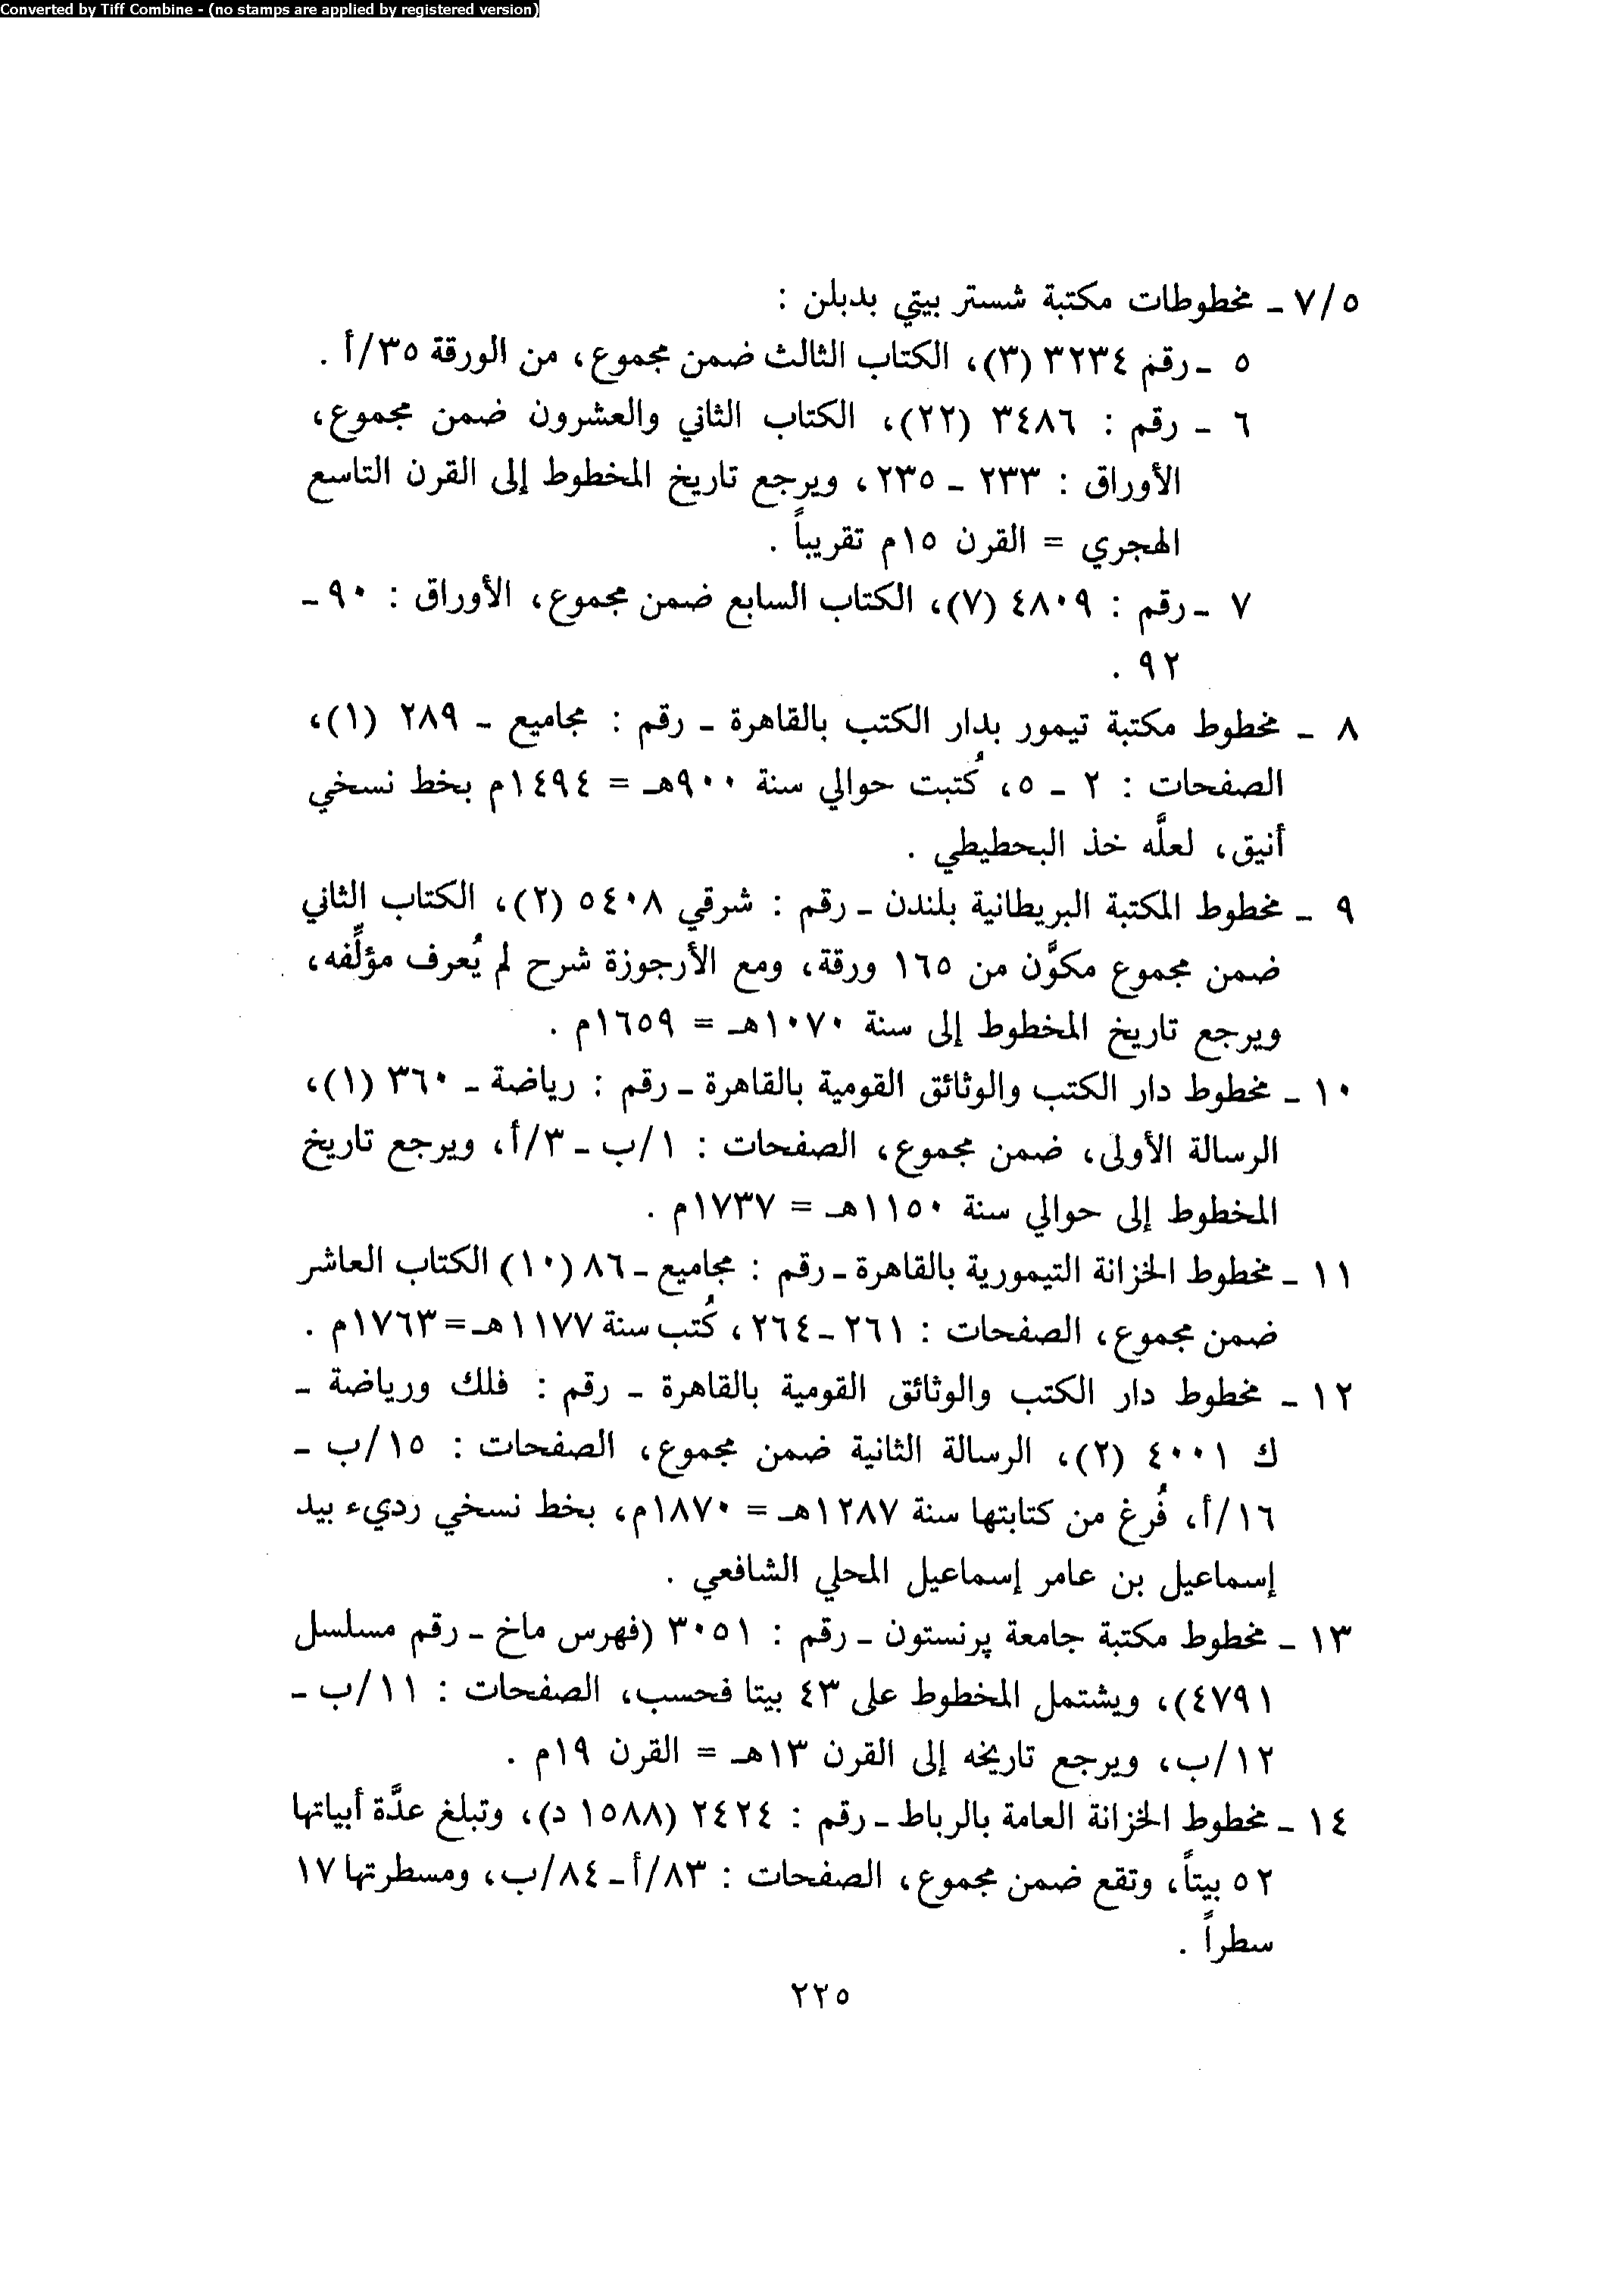 Converted by Tiff Combine - (no stamps are applied by registered version)
٧/٥ ـ مخطوطات مكتبة شستر بيتي بدبلن :
٥ ـ رقم ٣٢٣٤ (٣)، الكتاب الثالث ضمن مجموع، من الورقة ٣٥/أ .
٦ ـ رقم : ٣٤٨٦ (٢٢)، الكتاب الثاني والعشرون ضمن مجموع،
الأوراق : ٢٣٣ ـ ٢٣٥، ويرجع تاريخ المخطوط إلى القرن التاسع
الهجري = القرن ١٥م تقريباً .
٧ ـ رقم : ٤٨٠٩ (٧)، الكتاب السابع ضمن مجموع، الأوراق : ٩٠ ـ
٩٢ .
٨ ـ مخطوط مكتبة تيمور بدار الكتب بالقاهرة ـ رقم : مجاميع ـ ٢٨٩ (١)،
الصفحات : ٢ ـ ٥، كُتبت حوالي سنة ٩٠٠هـ = ١٤٩٤م بخط نسخي
أنيق، لعلَّه خذ البحطيطي .
٩ ـ مخطوط المكتبة البريطانية بلندن ـ رقم : شرقي ٥٤٠٨ (٢)، الكتاب الثاني
ضمن مجموع مكوَّن من ١٦٥ ورقة، ومع الأرجوزة شرح لم يُعرف مؤلِّفه،
ويرجع تاريخ المخطوط إلى سنة ١٠٧٠هـ = ١٦٥٩م .
١٠ ـ مخطوط دار الكتب والوثائق القومية بالقاهرة ـ رقم : رياضة ـ ٣٦٠ (١)،
الرسالة الأولى، ضمن مجموع، الصفحات : ١/ب ـ ٣/أ، ويرجع تاريخ
المخطوط إلى حوالي سنة ١١٥٠هـ = ١٧٣٧م .
١١ ـ مخطوط الخزانة التيمورية بالقاهرة ـ رقم : مجاميع ـ ٨٦ (١٠) الكتاب العاشر
ضمن مجموع، الصفحات : ٢٦١ ـ ٢٦٤، كُتب سنة ١١٧٧هـ = ١٧٦٣م .
١٢ ـ مخطوط دار الكتب والوثائق القومية بالقاهرة ـ رقم : فلك ورياضة ـ
ك ٤٠٠١ (٢)، الرسالة الثانية ضمن مجموع، الصفحات : ١٥/ب ـ
١٦/أ، فُرغ من كتابتها سنة ١٢٨٧هـ = ١٨٧٠م، بخط نسخي رديء بيد
إسماعيل بن عامر إسماعيل المحلي الشافعي .
١٣ ـ مخطوط مكتبة جامعة پرنستون ـ رقم : ٣٠٥١ (فهرس ماخ ـ رقم مسلسل
٤٧٩١)، ويشتمل المخطوط على ٤٣ بيتا فحسب، الصفحات : ١١/ب ـ
١٢/ب، ويرجع تاريخه إلى القرن ١٣هـ = القرن ١٩م .
١٤ ـ مخطوط الخزانة العامة بالرباط ـ رقم : ٢٤٢٤ (١٥٨٨ د)، وتبلغ عدَّة أبياتها
٥٢ بيتاً، وتقع ضمن مجموع، الصفحات : ٨٣/أ ـ ٨٤/ب، ومسطرتها ١٧
سطراً .
٢٢٥